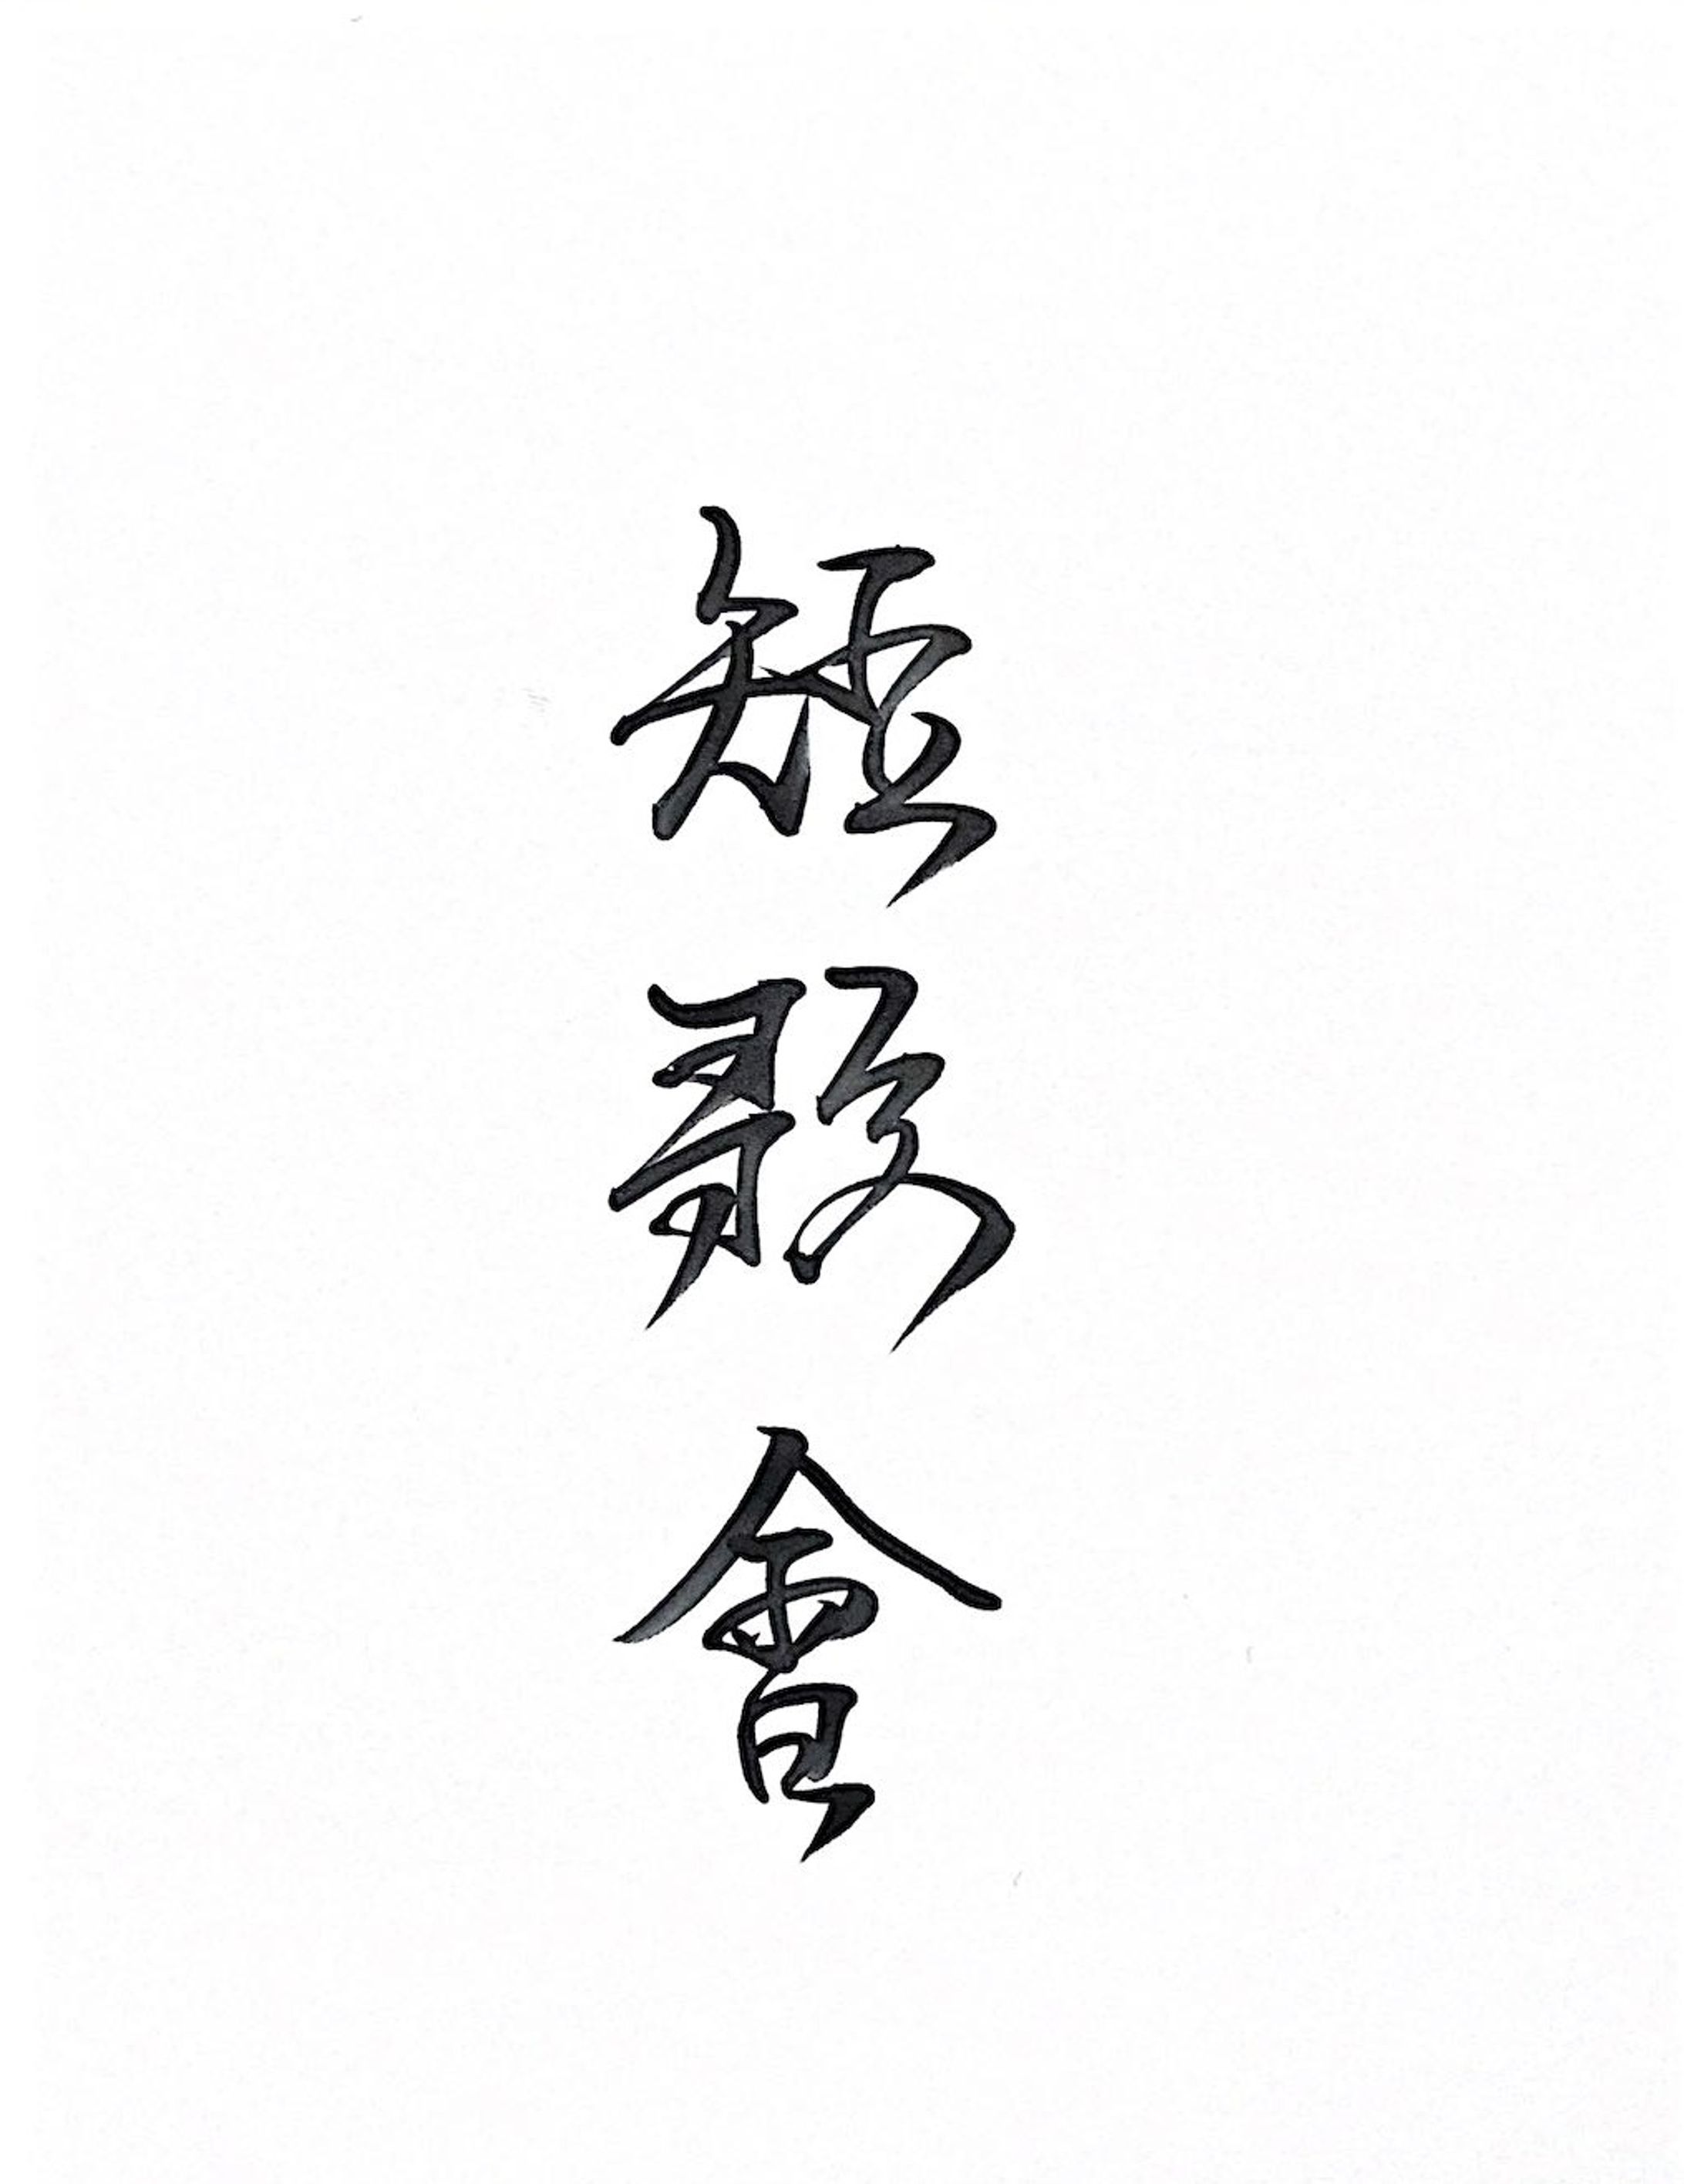 短歌會